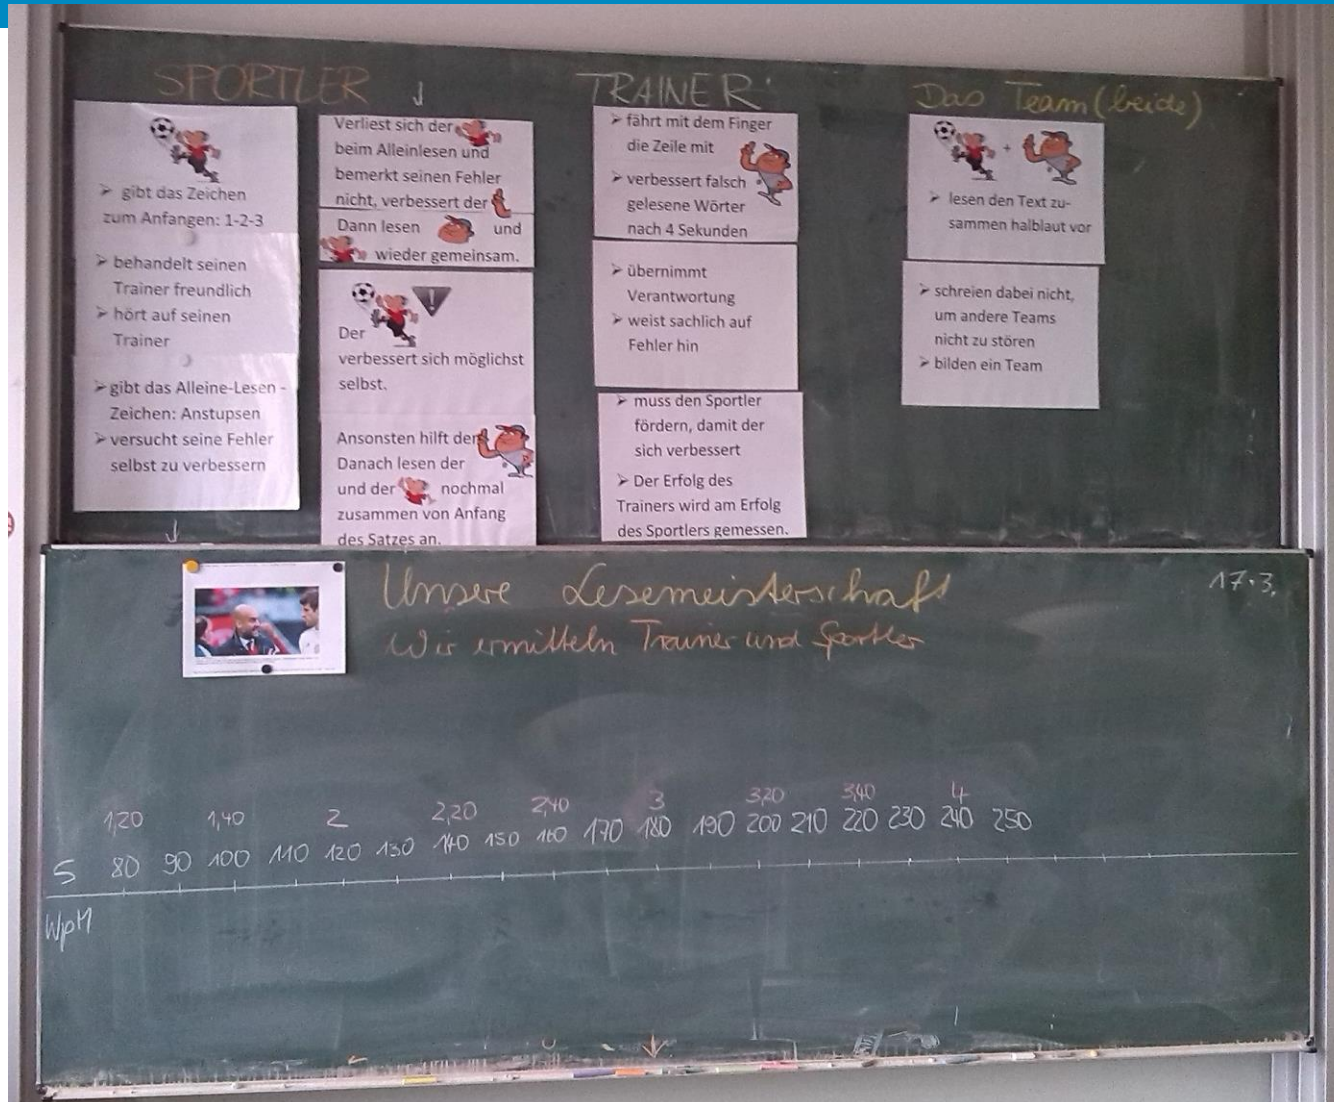 SPORTLER
gibt das Zeichen
zum Anfangen: 1-2-3
behandelt seinen
Trainer freundlich
hört auf seinen
Trainer
gibt das Alleine-Lesen -
Zeichen: Anstupsen
versucht seine Fehler
selbst zu verbessern
Verliest sich der
beim Alleinlesen und
bemerkt seinen Fehler
nicht, verbessert der
Dann lesen und
wieder gemeinsam.
!
Der
verbessert sich möglichst
selbst.
Ansonsten hilft der
Danach lesen der
und der nochmal
zusammen von Anfang
des Satzes an.
TRAINER
fährt mit dem Finger
die Zeile mit
verbessert falsch
gelesene Wörter
nach 4 Sekunden
übernimmt
Verantwortung
weist sachlich auf
Fehler hin
muss den Sportler
fördern, damit der
sich verbessert
Der Erfolg des
Trainers wird am Erfolg
des Sportlers gemessen.
Das Team (beide)
+
lesen den Text zu-
sammen halblaut vor
schreien dabei nicht,
um andere Teams
nicht zu stören
bilden ein Team
Unsere Lesemeisterschaft
17.3.
Wir ermitteln Trainer und Sportler
1,20 1,40 2 2,20 2,40 3 3,20 3,40 4
S 80 90 100 110 120 130 140 150 160 170 180 190 200 210 220 230 240 250
WpM